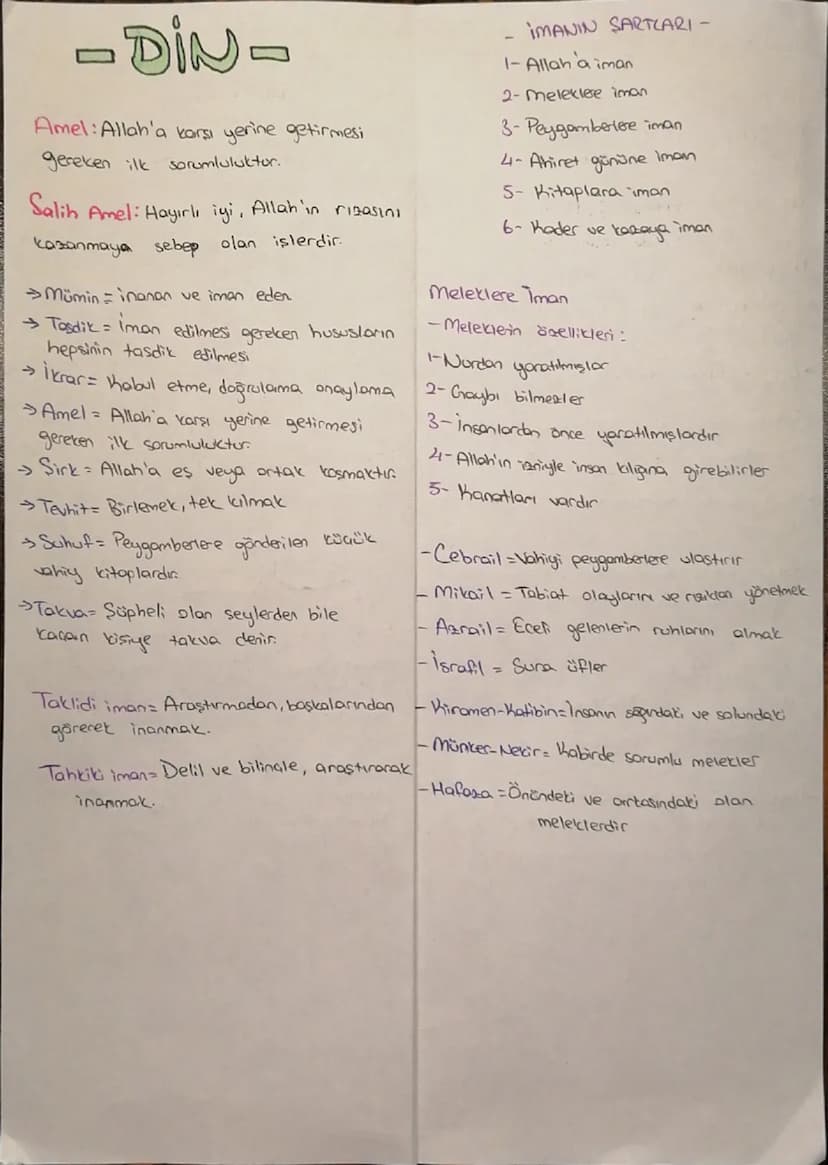 - DİN -
Amel: Allah'a karşı yerine getirmesi
gereken ilk sorumluluktur.
Salih Amel: Hayırlı iyi, Allah'ın rızasını
kazanmaya sebep olan işlerdir.
→ Mümin = inanan ve iman eden
→ Tasdik = İman edilmesi gereken hususların
hepsinin tasdik edilmesi
→ İkrar = Kabul etme, doğrulama onaylama
→ Amel = Allah'a karşı yerine getirmesi
gereken ilk sorumluluktur.
→ Şirk = Allah'a eş veya ortak koşmaktır.
→ Tevhit = Birlemek, tek kılmak
→ Suhuf = Peygamberlere gönderilen küçük
vahiy kitaplardır.
→ Takva = Şüpheli olan şeylerden bile
kaçan kişiye takva denir.
Taklidi iman = Araştırmadan, başkalarından
görerek inanmak.
Tahkiki iman = Delil ve bilinçle, araştırarak
inanmak.
- İMANIN ŞARTLARI -
1- Allah'a iman
2- Meleklere iman
3- Peygamberlere iman
4- Ahiret gününe iman
5- Kitaplara iman
6- Kader ve kazaya iman
Meleklere İman
- Meleklerin özellikleri :
1- Nurdan yaratılmışlar
2- Gaybı bilmezler
3- İnsanlardan önce yaratılmışlardır
4- Allah'ın izniyle insan kılığına girebilirler
5- Kanatları vardır
- Cebrail = Vahiyi peygamberlere ulaştırır
- Mikail = Tabiat olaylarını ve rızıkları yönetmek
- Azrail = Eceli gelenlerin ruhlarını almak
- İsrafil = Sura üfler
- Kiramen-Katibin = İnsanın sağındaki ve solundaki
- Münker-Nekir = Kabirde sorumlu melekler
- Hafaza = Önündeki ve ortasındaki olan
meleklerdir